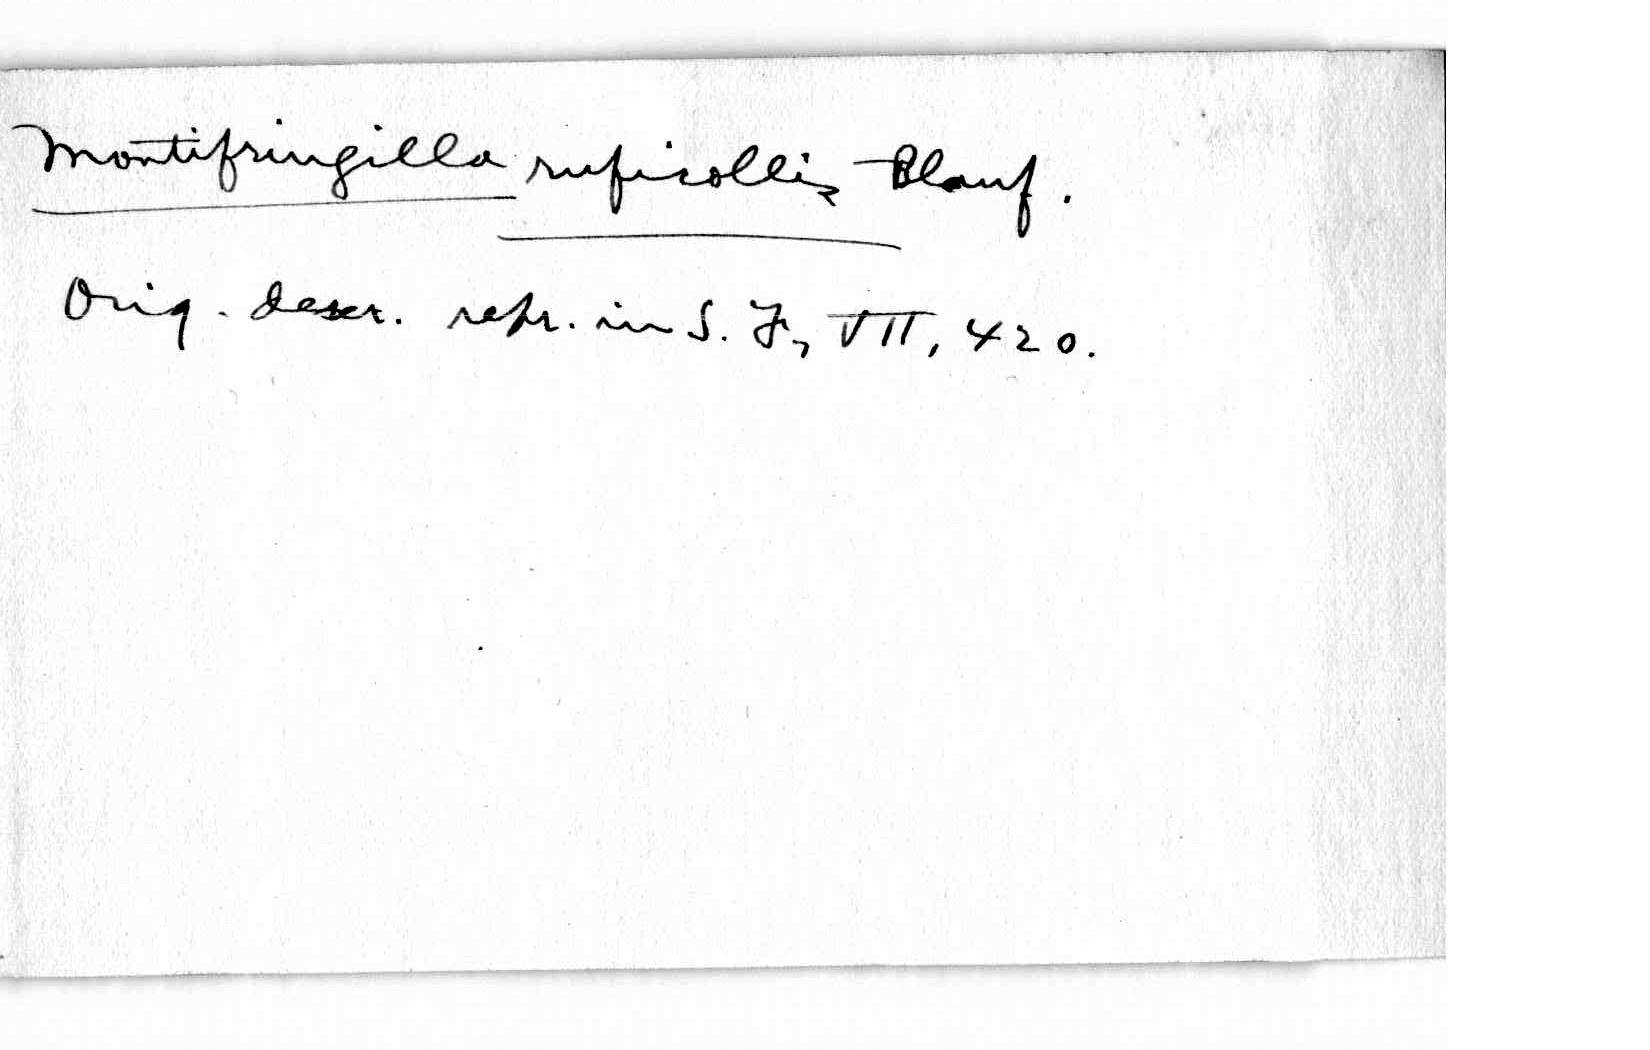 Montifringilla ruficollis Blanf.
Orig. descr. repr. in S. F., VII, 420.